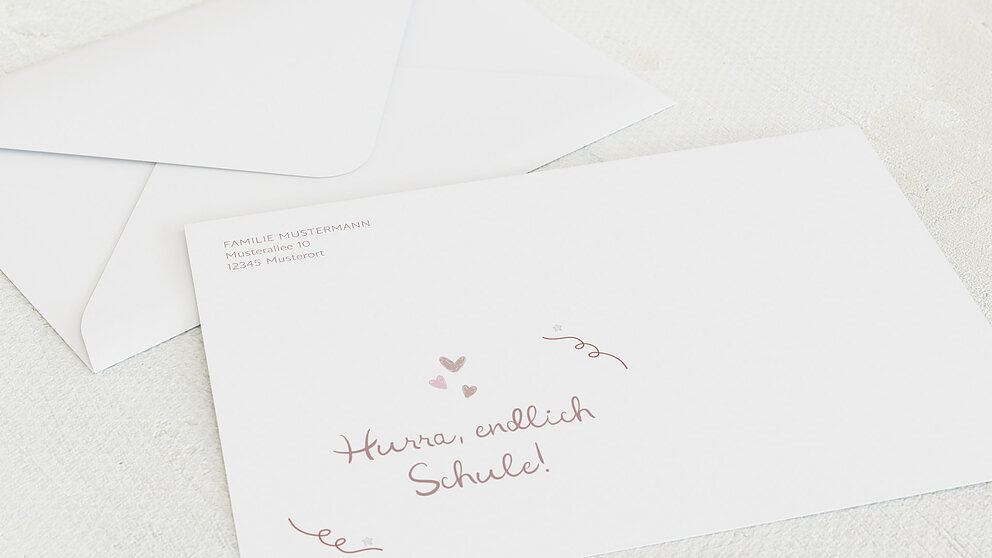 FAMILIE MUSTERMANN
Musterallee 10
12345 Musterort
Hurra, endlich
Schule!